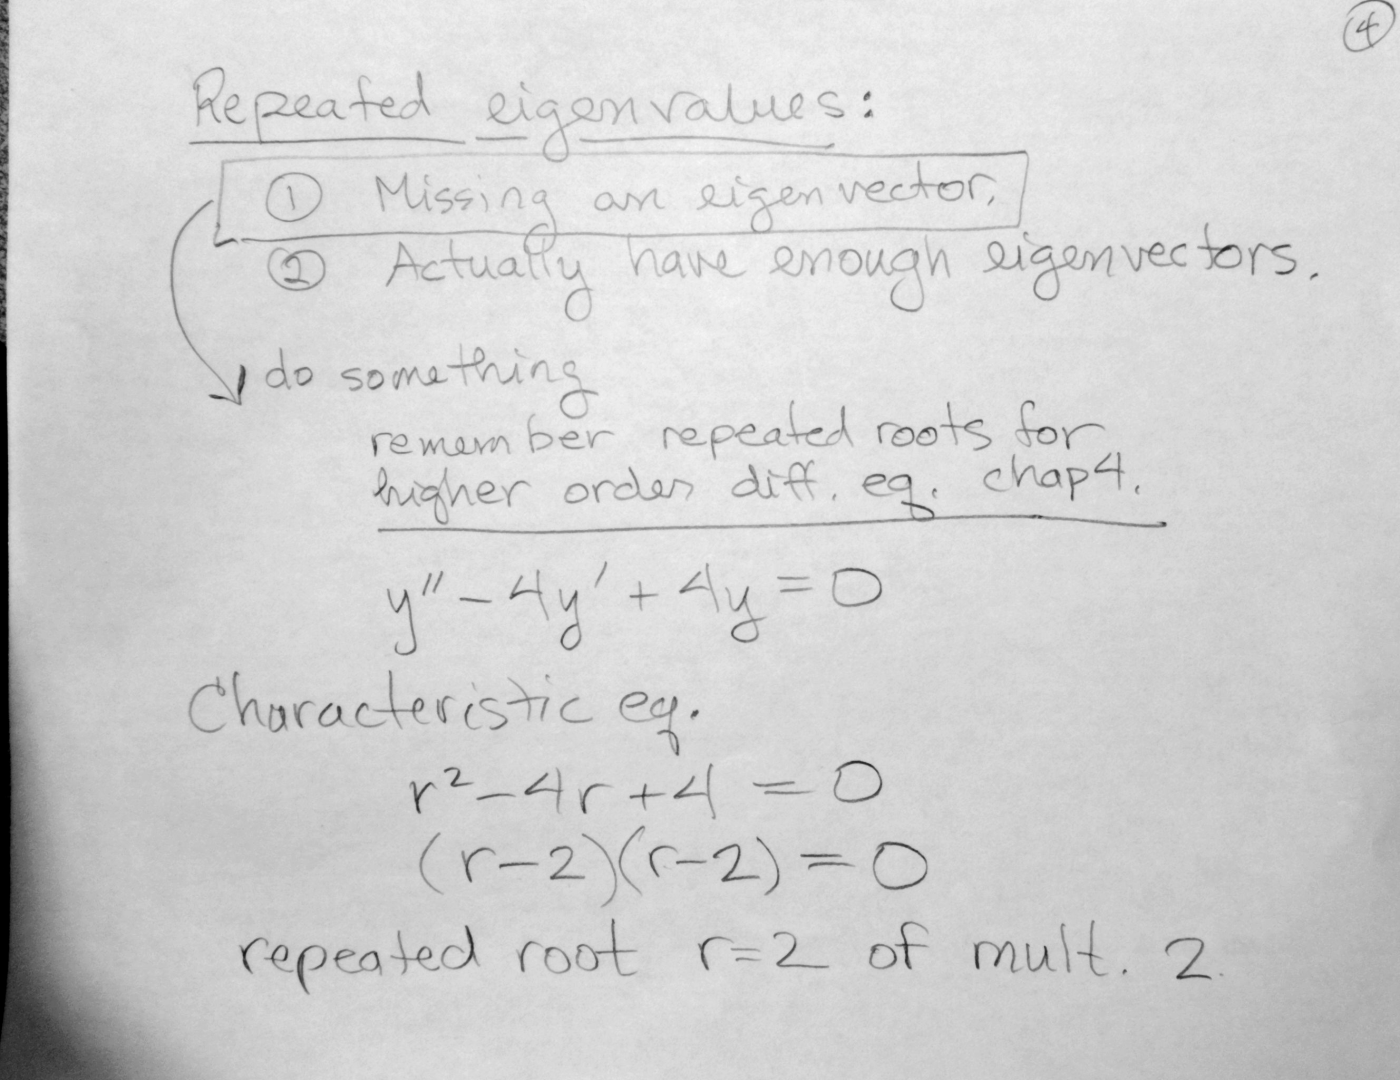 ④
Repeated eigenvalues:
① Missing an eigenvector.
② Actually have enough eigenvectors.
do something
remember repeated roots for
higher order diff. eq. chap4.
y'' - 4y' + 4y = 0
Characteristic eq.
r² - 4r + 4 = 0
(r-2)(r-2) = 0
repeated root r=2 of mult. 2.